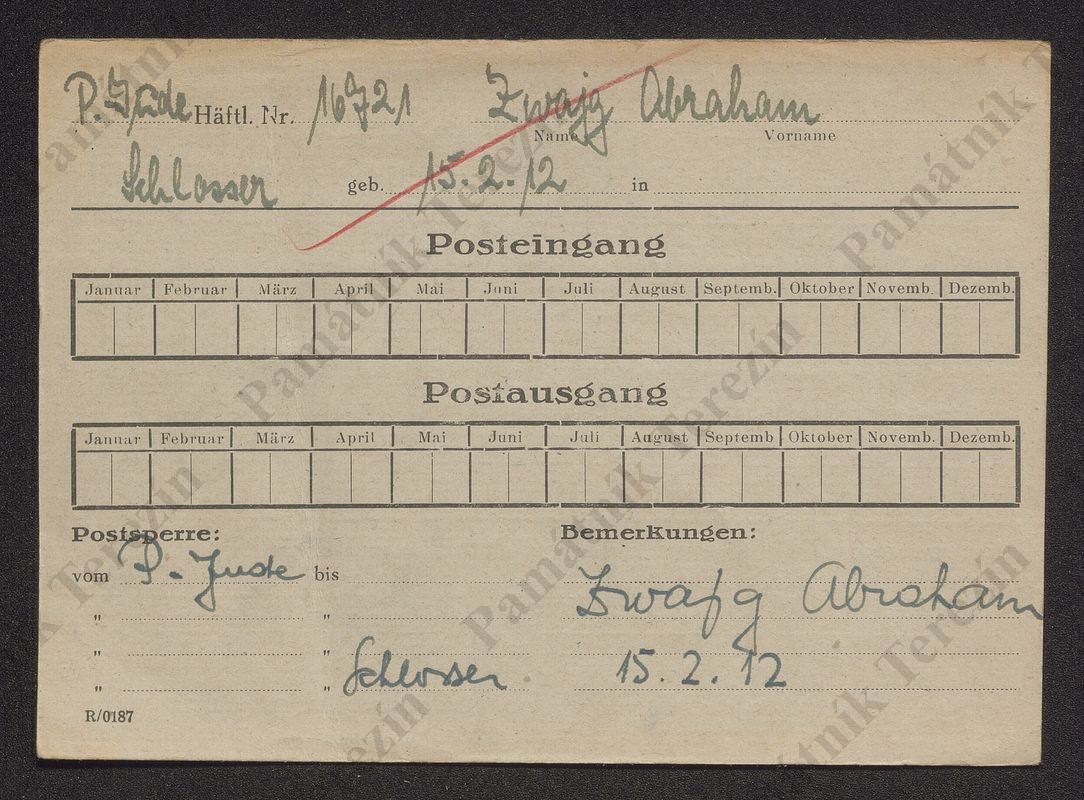 P. Jude Häftl. Nr. 16721 Zwajg Abraham
Name Vorname
Schlosser geb. 15.2.12 in
Posteingang
Januar Februar März April Mai Juni Juli August Septemb. Oktober Novemb. Dezemb.
Postausgang
Januar Februar März April Mai Juni Juli August Septemb Oktober Novemb. Dezemb.
Postsperre: Bemerkungen:
vom P. Jude bis Zwajg Abraham
" "
" " Schlosser 15.2.12
" "
R/0187
Památník Terezín